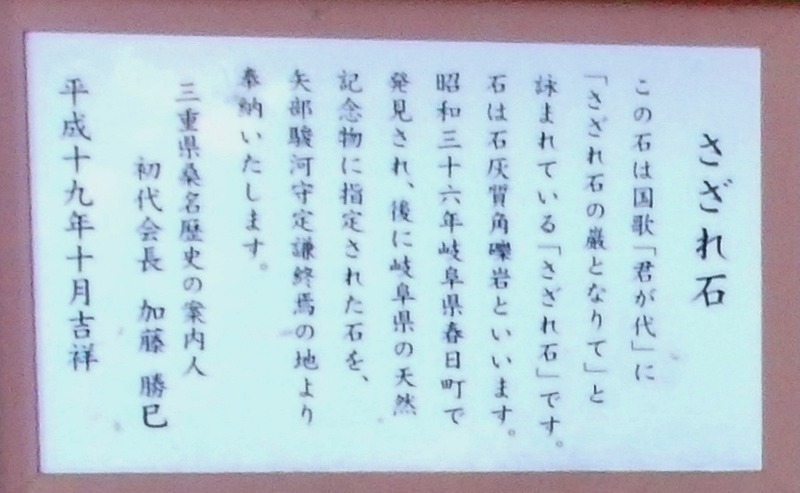 さざれ石
この石は国歌「君が代」に
「さざれ石の巌となりて」と
詠まれている「さざれ石」です。
石は石灰質角礫岩といいます。
昭和三十六年岐阜県春日町で
発見され、後に岐阜県の天然
記念物に指定された石を、
矢部駿河守定謙終焉の地より
奉納いたします。
三重県桑名歴史の案内人
初代会長 加藤 勝巳
平成十九年十月吉祥